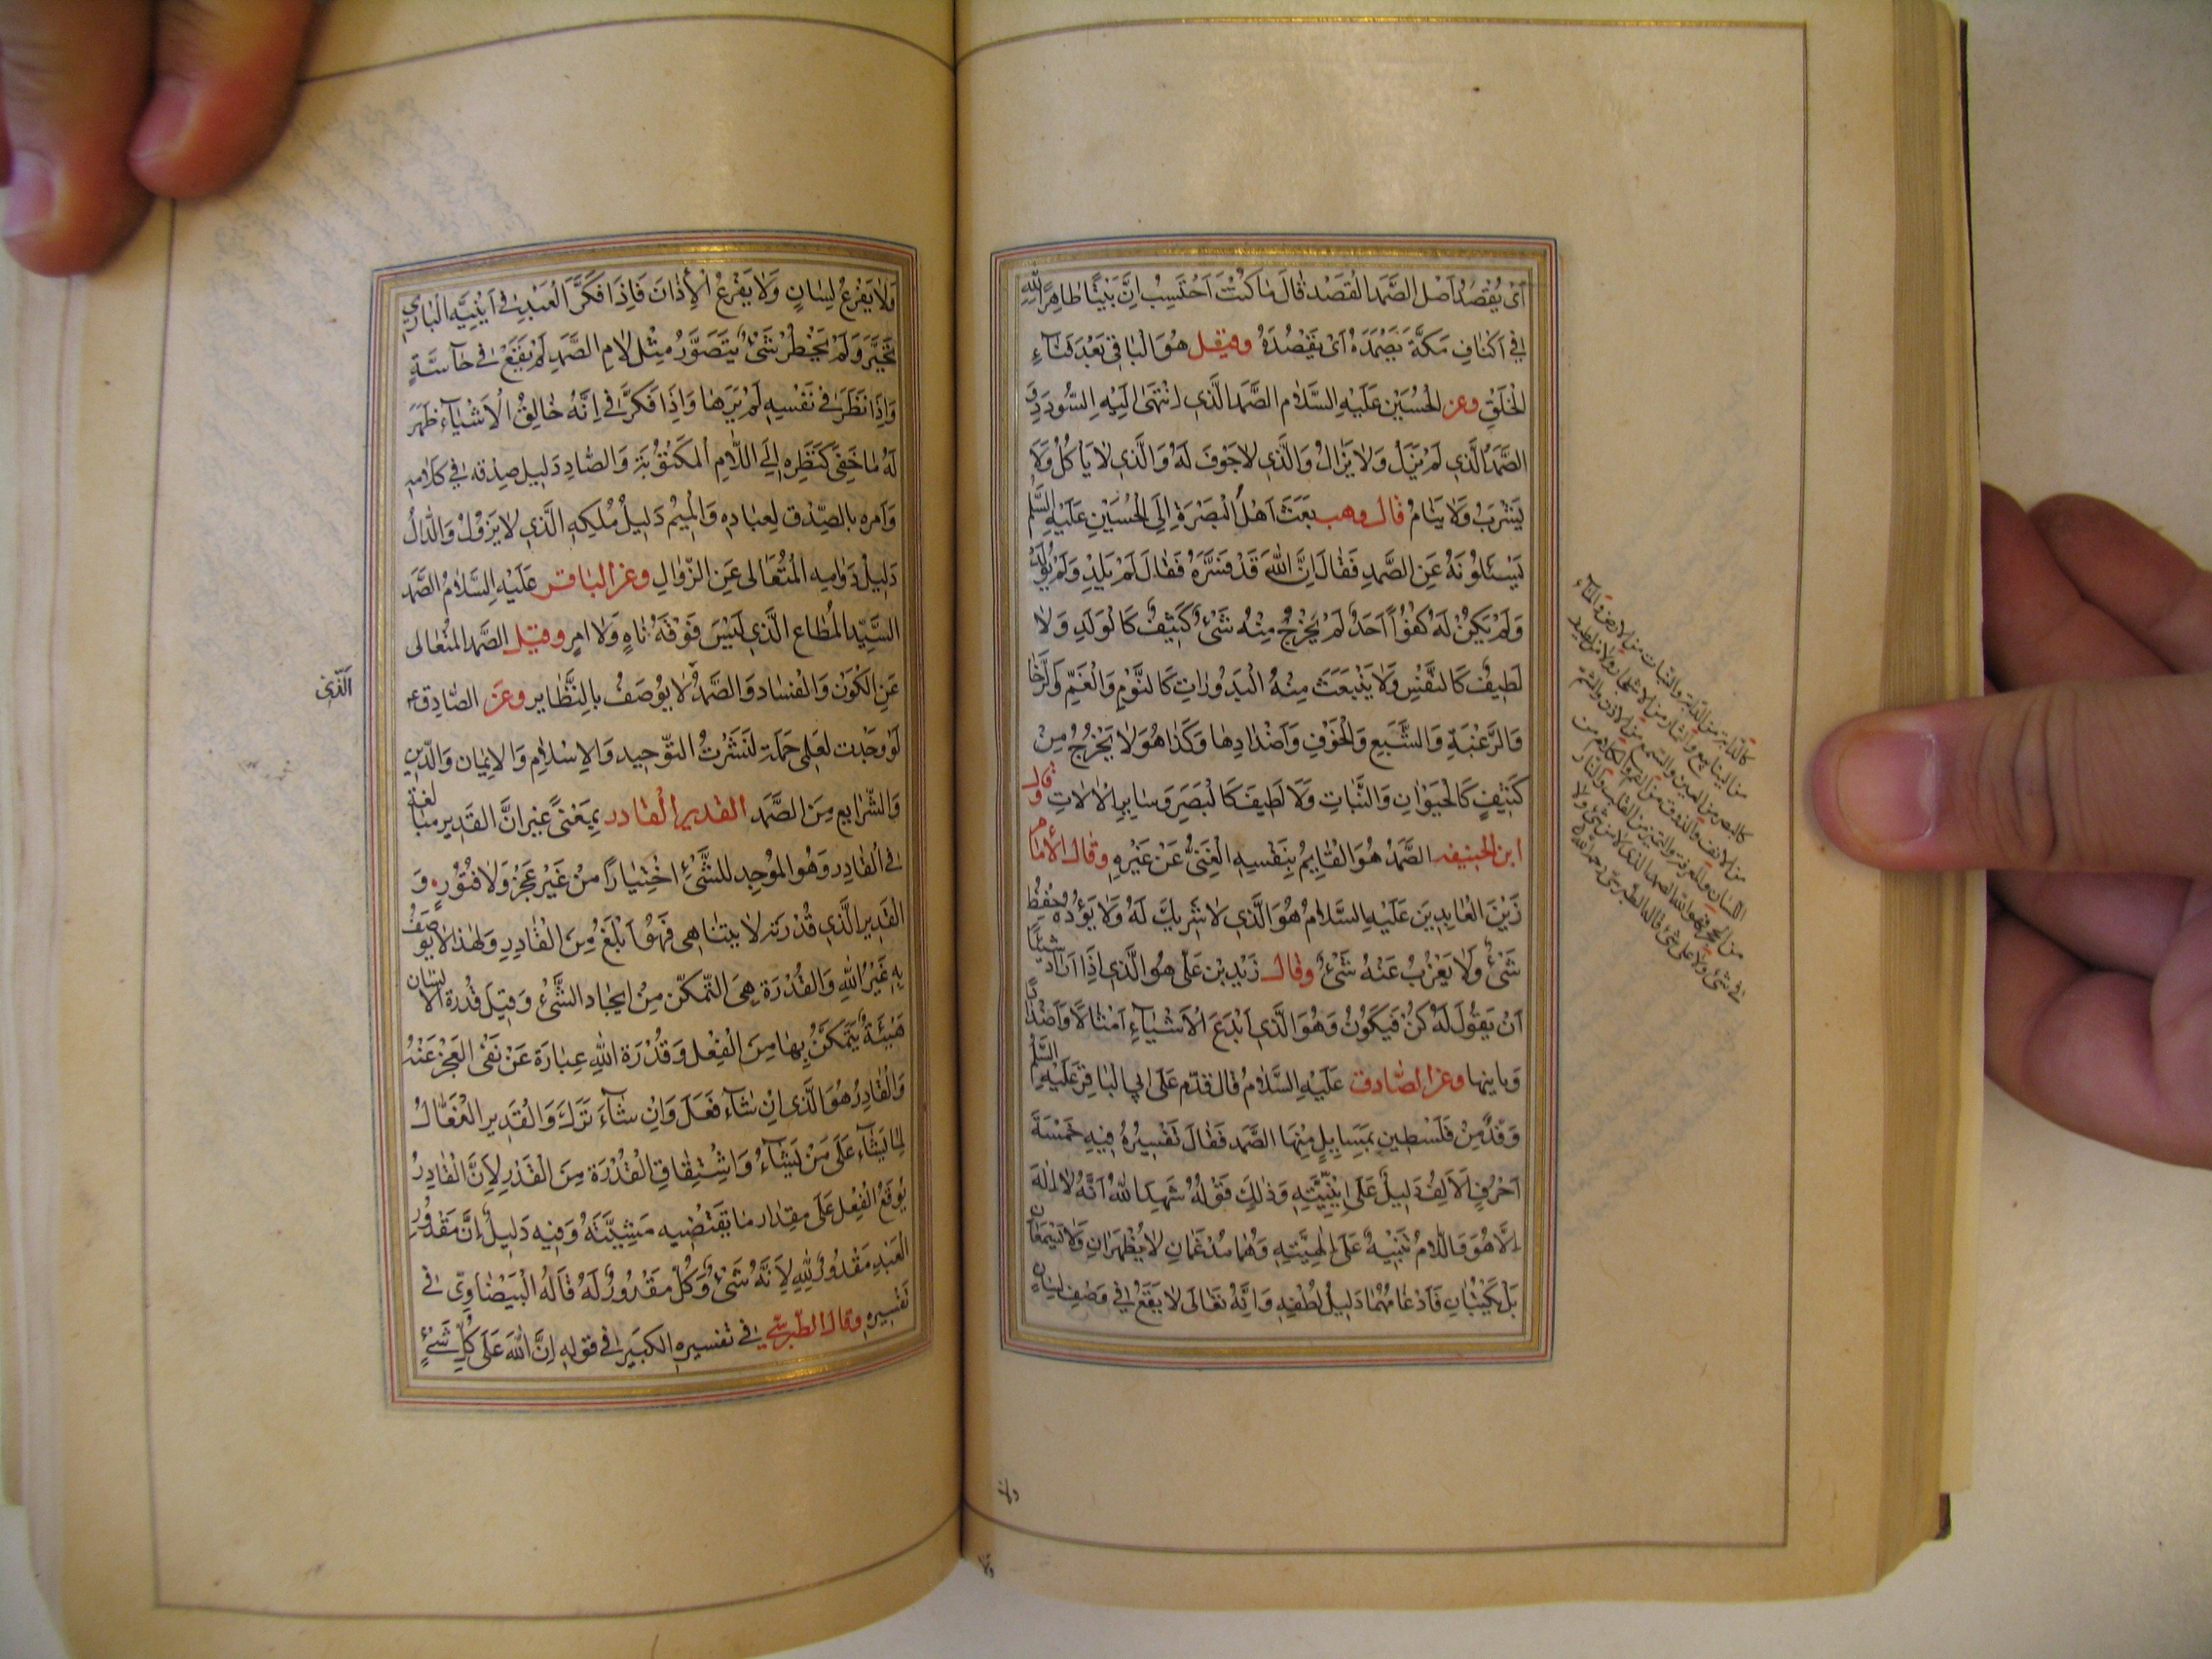 اَىْ يُقْصَدُ اَصْلُ الصَّمَدِ القَصْد قالَ مٰا كُنْتُ اَحْتَسِبُ اِنَّ بَيْتًا طٰاهِرًا لِلّٰهِ
فِي اَكْنٰافِ مَكَّةَ يَصْمُدَهُ اَىْ يَقْصُدَهُ وقيل هُوَ البٰاقِي بَعْدَ فَنٰاءِ
الْخَلْقِ وعن الحُسَيْنِ عَلَيْهِ السَّلٰام الصَّمَد الَّذِي اِنْتَهٰى اِلَيْهِ السُّودَدِ وَ
الصَّمَدُ الَّذِي لَمْ يَزَلْ وَلا يَزٰالُ وَالَّذِي لاجَوْفَ لَهُ وَالَّذِي لا يَأكُلُ وَلا
يَشْرَبُ وَلا يَنٰامُ قال وهب بَعَثَ اَهْلُ الْبَصْرَةِ اِلَى الْحُسَيْنِ عَلَيْهِ السَّلٰم
يَسْئَلُونَهُ عَنِ الصَّمَدِ فَقٰالَ اِنَّ اللّٰهَ قَدْ فَسَّرَهُ فَقٰالَ لَمْ يَلِدْ وَلَمْ يُولَدْ
وَلَمْ يَكُنْ لَهُ كُفُوًا اَحَدٌ لَمْ يَخْرُجْ مِنْهُ شَىْءٌ كَثِيفٌ كَالْوَلَدِ وَلا
لَطِيفٌ كَالنَّفْسِ وَلا يَنْبَعِثُ مِنْهُ الْبَدَوٰاتِ كَالنَّوْمِ وَالْغَمِّ وَالرَّجٰا
وَالرَّغْبَةِ وَالشَّبَعِ وَالْخَوْفِ وَاَضْدٰادِهٰا وَكَذٰا هُوَ لا يَخْرُجُ مِنْ
كَثِيفٍ كَالْحَيَوٰانِ وَالنَّبٰاتِ وَلا لَطِيفٍ كَالْبَصَرِ وَسٰايِرِ الْاٰلاتِ وقال
ابن الحنيفه الصَّمَدُ هُوَ القٰايِمُ بِنَفْسِهِ الْغَنِىُّ عَنْ غَيْرِهِ وقال الامام
زَيْنَ العٰابِدِينَ عَلَيْهِ السَّلٰامُ هُوَ الَّذِي لاشَرِيكَ لَهُ وَلا يَؤُدُهُ حِفْظُ
شَىْءٍ وَلا يَعْزُبُ عَنْهُ شَىْءٌ وقال زَيْدِ بْن عَلِى هُوَ الَّذِي اِذٰا اَرٰادَ شَيْئًا
اَنْ يَقُولَ لَهُ كُنْ فَيَكُونُ وَهُوَ الَّذِي اَبْدَعَ الاَشْيٰاءَ اَمْثٰالًا وَاَضْدٰادًا
وَبٰاينها وعن الصّادق عَلَيْهِ السَّلٰامُ قٰالَ قَدِمَ عَلٰى اَبِي البٰاقِرِ عَلَيْهِ السَّلٰم
وَفْدٌ مِنْ فَلَسْطِينِ بِمَسٰايِلٍ مِنْهَا الصَّمَد فَقٰالَ تَفْسِيْرُهُ فِيهِ خَمْسَةَ
اَحْرُفٍ اَلْاَلِفُ دَلِيلٌ عَلٰى اِنِّيَّتِهِ وَذٰلِكَ قَوْلُهُ شَهِدَ اللّٰهُ اَنَّهُ لا اِلٰهَ
اِلّٰا هُوَ وَاللّٰامُ تَنْبِيْهٌ عَلٰى اِلٰهِيَّتِهِ وَهُمٰا مُدْغَمٰانِ لا يُظْهَرٰانِ وَلا يُسْمَعٰانِ
بَلْ يُكْتَبٰانِ فَاِدْغٰامُهُمٰا دَلِيلُ لُطْفِهِ وَاِنَّهُ تَعٰالٰى لا يَقَعُ فِي وَصْفِ لِسٰانٍ
كالدّابة من الدّابة والنّبات من الارض والمآء
من الينابيع والثمار من الاشجار ولا من لطيف
كالبصر من العين والسّمع من الاذن والشم
من الانف والذوق من الفم والكلام من
اللّسان والمعرفة والتميز من القلب والنّار
من الحجر فهو الله الصمد الذى لا من شئ ولا
فى شئ ولا على شئ قاله الطّبرسى رحمه الله
ولا
وَلا يَقْرَعُ لِسٰانٍ وَلا يَقْرَعُ الْاٰذٰانَ فَاِذٰا فَكَّرَ الْعَبْدِ فِي اِنِّيَّهِ الْبٰارِي
تَحَيَّرَ وَلَمْ يَخْطُرْ شَىْءٌ يَتَصَوَّرُ مِثْلُ لامِ الصَّمَدِ لَمْ يَقَعْ فِي حٰاسَّةٍ
وَاِذٰا نَظَرَ فِي نَفْسِهِ لَمْ يَرَهٰا وَاِذٰا فَكَّرَ فِي اِنَّهُ خٰالِقُ الْاَشْيٰآءِ ظَهَرَ
لَهُ مٰاخَفِىَ كَنَظَرِهِ اِلَى اللّٰامِ الْمَكْتُوبَةِ وَالصّٰادِ دَلِيلُ صِدْقِهِ فِي كَلٰامِهِ
وَاَمْرِهِ بِالصِّدْقِ لِعِبٰادِهِ وَالْمِيمُ دَلِيلُ مُلْكِهِ الَّذِي لا يَزُوْلُ وَالدّٰالُ
دَلِيلُ دَوٰامِهِ الْمُتَعٰالٰى عَنِ الزَّوٰالِ وعن الباقر عَلَيْهِ السَّلٰامُ الصَّمَد
السَّيِّدِ المُطٰاعِ الَّذِي لَيْسَ فَوْقَهُ نٰاهٍ وَلا اٰمِرٍ وقيل الصَّمَد المُتَعٰالٰى
عَنِ الكَوْنِ وَالْفَسٰادِ وَالصَّمَدُ لا يُوصَفُ بِالنَّظٰايِرِ وعَن الصّٰادِقِ ع
لَوْ وَجَدْتُ لِعِلْمِى حَمَلَةً لَنَشَرْتُ التَّوْحِيدَ وَالاِسْلٰامِ وَالاِيمٰانِ وَالدِّينِ
الَّذى
وَالشَّرٰايِعِ مِنَ الصَّمَدِ القدير القادر بِمَعْنًى غَيْرَ انَّ القَدِيرَ مُبٰالَغَةٌ
فِي القٰادِرِ وَهُوَ المُوجِدِ لِلشَّىْءِ اخْتِيٰارًا مِنْ غَيْرِ عَجْزٍ وَلا فُتُوْرٍ وَ
القَدِيرِ الَّذِي قُدْرَتَهُ لا يَتَنٰاهٰى فَهُوَ اَبْلَغُ مِنَ القٰادِرِ وَلِهٰذٰا لا يُوصَفُ
بِهِ غَيْرُ اللّٰهِ وَالقُدْرَةَ هِىَ التَّمَكُّنِ مِنْ اِيجٰادِ الشَّىْءِ وَقِيلَ قُدْرَةُ الاِنْسٰان
هَيْئَةٌ يَتَمَكَّنُ بِهٰا مِنَ الْفِعْلِ وَقُدْرَةُ اللّٰهِ عِبٰارَةٌ عَنْ نَفْىِ الْعَجْزِ عَنْهُ
وَالْقٰادِرُ هُوَ الَّذِى اِنْ شٰآءَ فَعَلَ وَاِنْ شٰآءَ تَرَكَ وَالْقَدِيرِ الْفَعّٰالُ
لِمٰا يَشٰآءُ عَلٰى مَنْ يَشٰآءُ وَاشْتِقٰاقِ الْقُدْرَةِ مِنَ الْقَدْرِ لِاَنَّ الْقٰادِرُ
يُوقِعُ الْفِعْلَ عَلٰى مِقْدٰارِ مٰا يَقْتَضِيهِ مَشِيَّتَهُ وَفِيهِ دَلِيلُ اِنَّ مَقْدُورُ
الْعَبْدِ مَقْدُورٌ لِلّٰهِ لِاَنَّهُ شَىْءٌ وَكُلُّ مَقْدُورٌ لَهُ قٰالَهُ الْبَيْضٰاوِىّ فِي
تَفْسِيرِهِ وقال الطبرسي فِي تَفْسِيرِهِ الكَبِيرِ فِي قَوْلِهِ اِنَّ اللّٰهَ عَلٰى كُلِّ شَىْءٍ